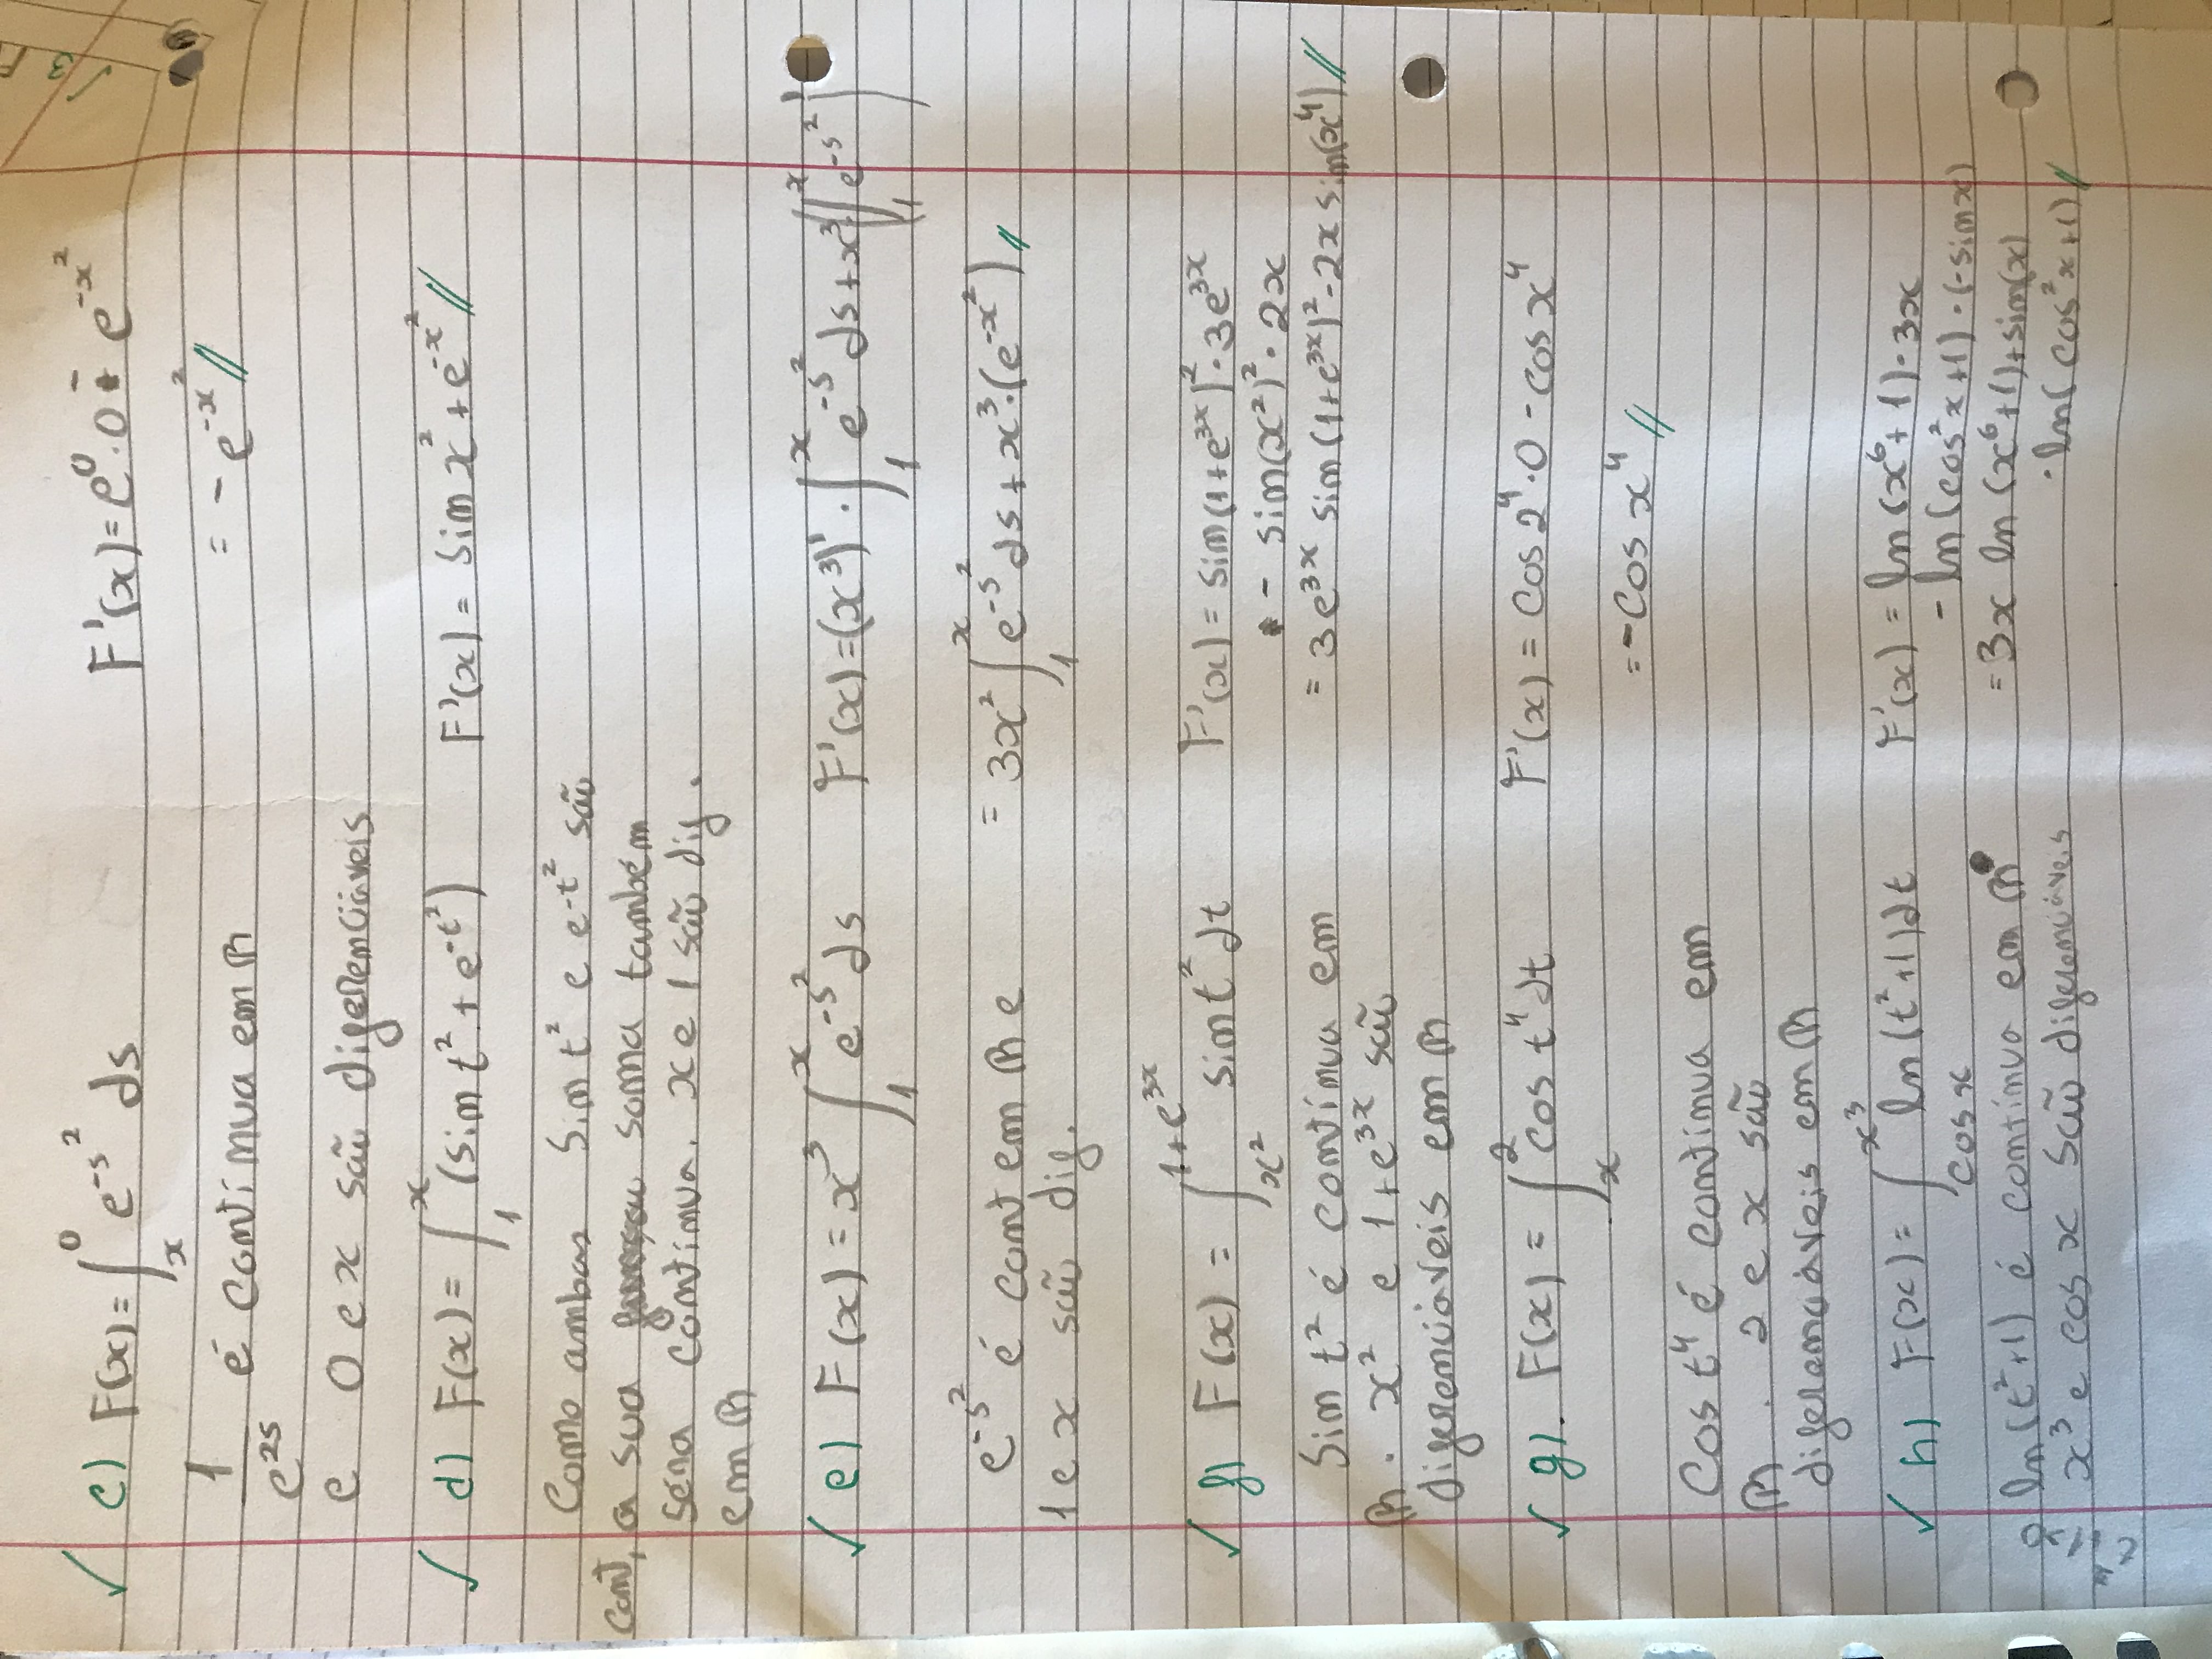 ✓ c) F(x) = ∫_x^0 e^{-s^2} ds    F'(x) = e^0 · 0 - e^{-x^2}
1/e^{2s} é contínua em ℝ    = -e^{-x^2} //
e 0 e x são diferenciáveis
✓ d) F(x) = ∫_1^x (sin t^2 + e^{-t^2})    F'(x) = sin x^2 + e^{-x^2} //
Como ambas sin t^2 e e^{-t^2} são
cont, a sua soma também
será contínua. x e 1 são dif.
em ℝ
✓ e) F(x) = x^3 ∫_1^x e^{-s^2} ds    F'(x) = (x^3)' · ∫_1^x e^{-s^2} ds + x^3 (∫_1^x e^{-s^2})'
e^{-s^2} é cont em ℝ e    = 3x^2 ∫_1^x e^{-s^2} ds + x^3 · (e^{-x^2}) //
1 e x são dif.
✓ f) F(x) = ∫_{x^2}^{1+e^{3x}} sin t^2 dt    F'(x) = sin(1+e^{3x})^2 · 3e^{3x}
- sin(x^2)^2 · 2x
sin t^2 é contínua em    = 3e^{3x} sin(1+e^{3x})^2 - 2x sin(x^4) //
ℝ. x^2 e 1+e^{3x} são
diferenciáveis em ℝ
✓ g). F(x) = ∫_x^2 cos t^4 dt    F'(x) = cos 2^4 · 0 - cos x^4
= -cos x^4 //
Cos t^4 é contínua em
ℝ. 2 e x são
diferenciáveis em ℝ
✓ h) F(x) = ∫_{cos x}^{x^3} ln(t^2+1) dt    F'(x) = ln(x^6+1) · 3x
- ln(cos^2 x+1) · (-sin x)
ln(t^2+1) é contínua em ℝ    = 3x ln(x^6+1) + sin(x)
x^3 e cos x são diferenciáveis    · ln(cos^2 x+1) //
t^2+1>0
✓ 3